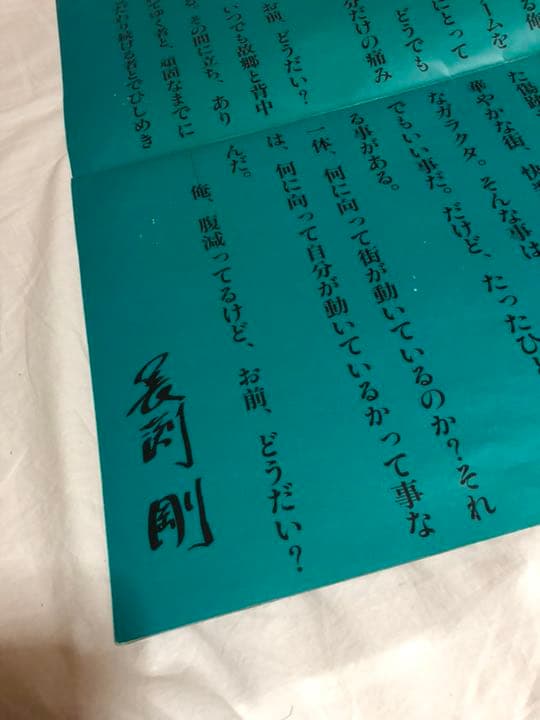 る俺
ームを
にとって
どうでも
分だけの痛み
お前、どうだい?
いつでも故郷と背中
、その間に立ち、あり
てゆく者と、頑固なまでに
り続ける者とでひしめき
た傷跡
華やかな街、快
なガラクタ。そんな事は
でもいい事だ。だけど、たったひと
る事がある。
一体、何に向って街が動いているのか?それ
は、何に向って自分が動いているかって事な
んだ。
俺、腹減ってるけど、お前、どうだい?
長渕 剛